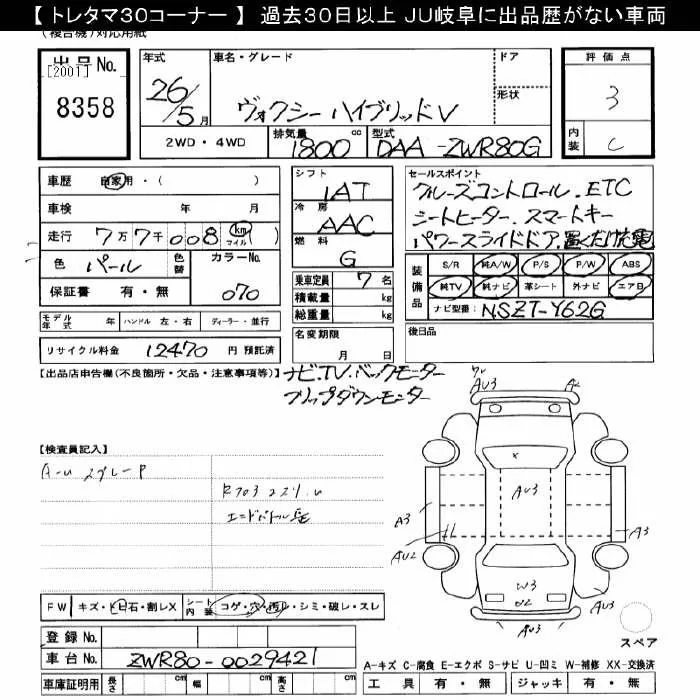 【 トレタマ30コーナー 】 過去30日以上 JU岐阜に出品歴がない車両
(複合機)対応用紙
出品No.
[2001]
8358
年式
26/5月
車名・グレード
ヴォクシー ハイブリッドV
ドア
形状
評価点
3
内装
C
2WD・4WD
排気量
1800cc
型式
DAA-ZWR80G
車歴 自家用・( )
車検 年 月
走行 7万7千008 km マイル ( )
色 パール 色替
カラーNo. 070
保証書 有・無
モデル年式 年 ハンドル 左・右 ディーラー・並行
リサイクル料金 12470 円 預託済
シフト
1AT
冷房
AAC
燃料
G
乗車定員 7名
積載量 kg
総重量 kg
名変期限
月 日
セールスポイント
クルーズコントロール. ETC
シートヒーター. スマートキー
パワースライドドア. 置くだけ充電
装備品
S/R 純A/W P/S P/W ABS
純TV 純ナビ 革シート 外ナビ エアB
ナビ型番: NSZT-Y62G
後日品
【出品店申告欄(不良箇所・欠品・注意事項等)】
ナビ.TV.バックモーター
フリップダウンモニター
【検査員記入】
FW キズ・トビ石・割レX
シート内装 コゲ・穴・汚レ・シミ・破レ・スレ
登録No.
車台No. ZWR80-0029421
車庫証明用 長さ cm 幅 cm 高さ cm
AU3
A3
AU2
AU3
A3
W3
U2
AU3
スペア
A-キズ C-腐食 E-エクボ S-サビ U-凹ミ W-補修 XX-交換済
工具 有・無 ジャッキ 有・無